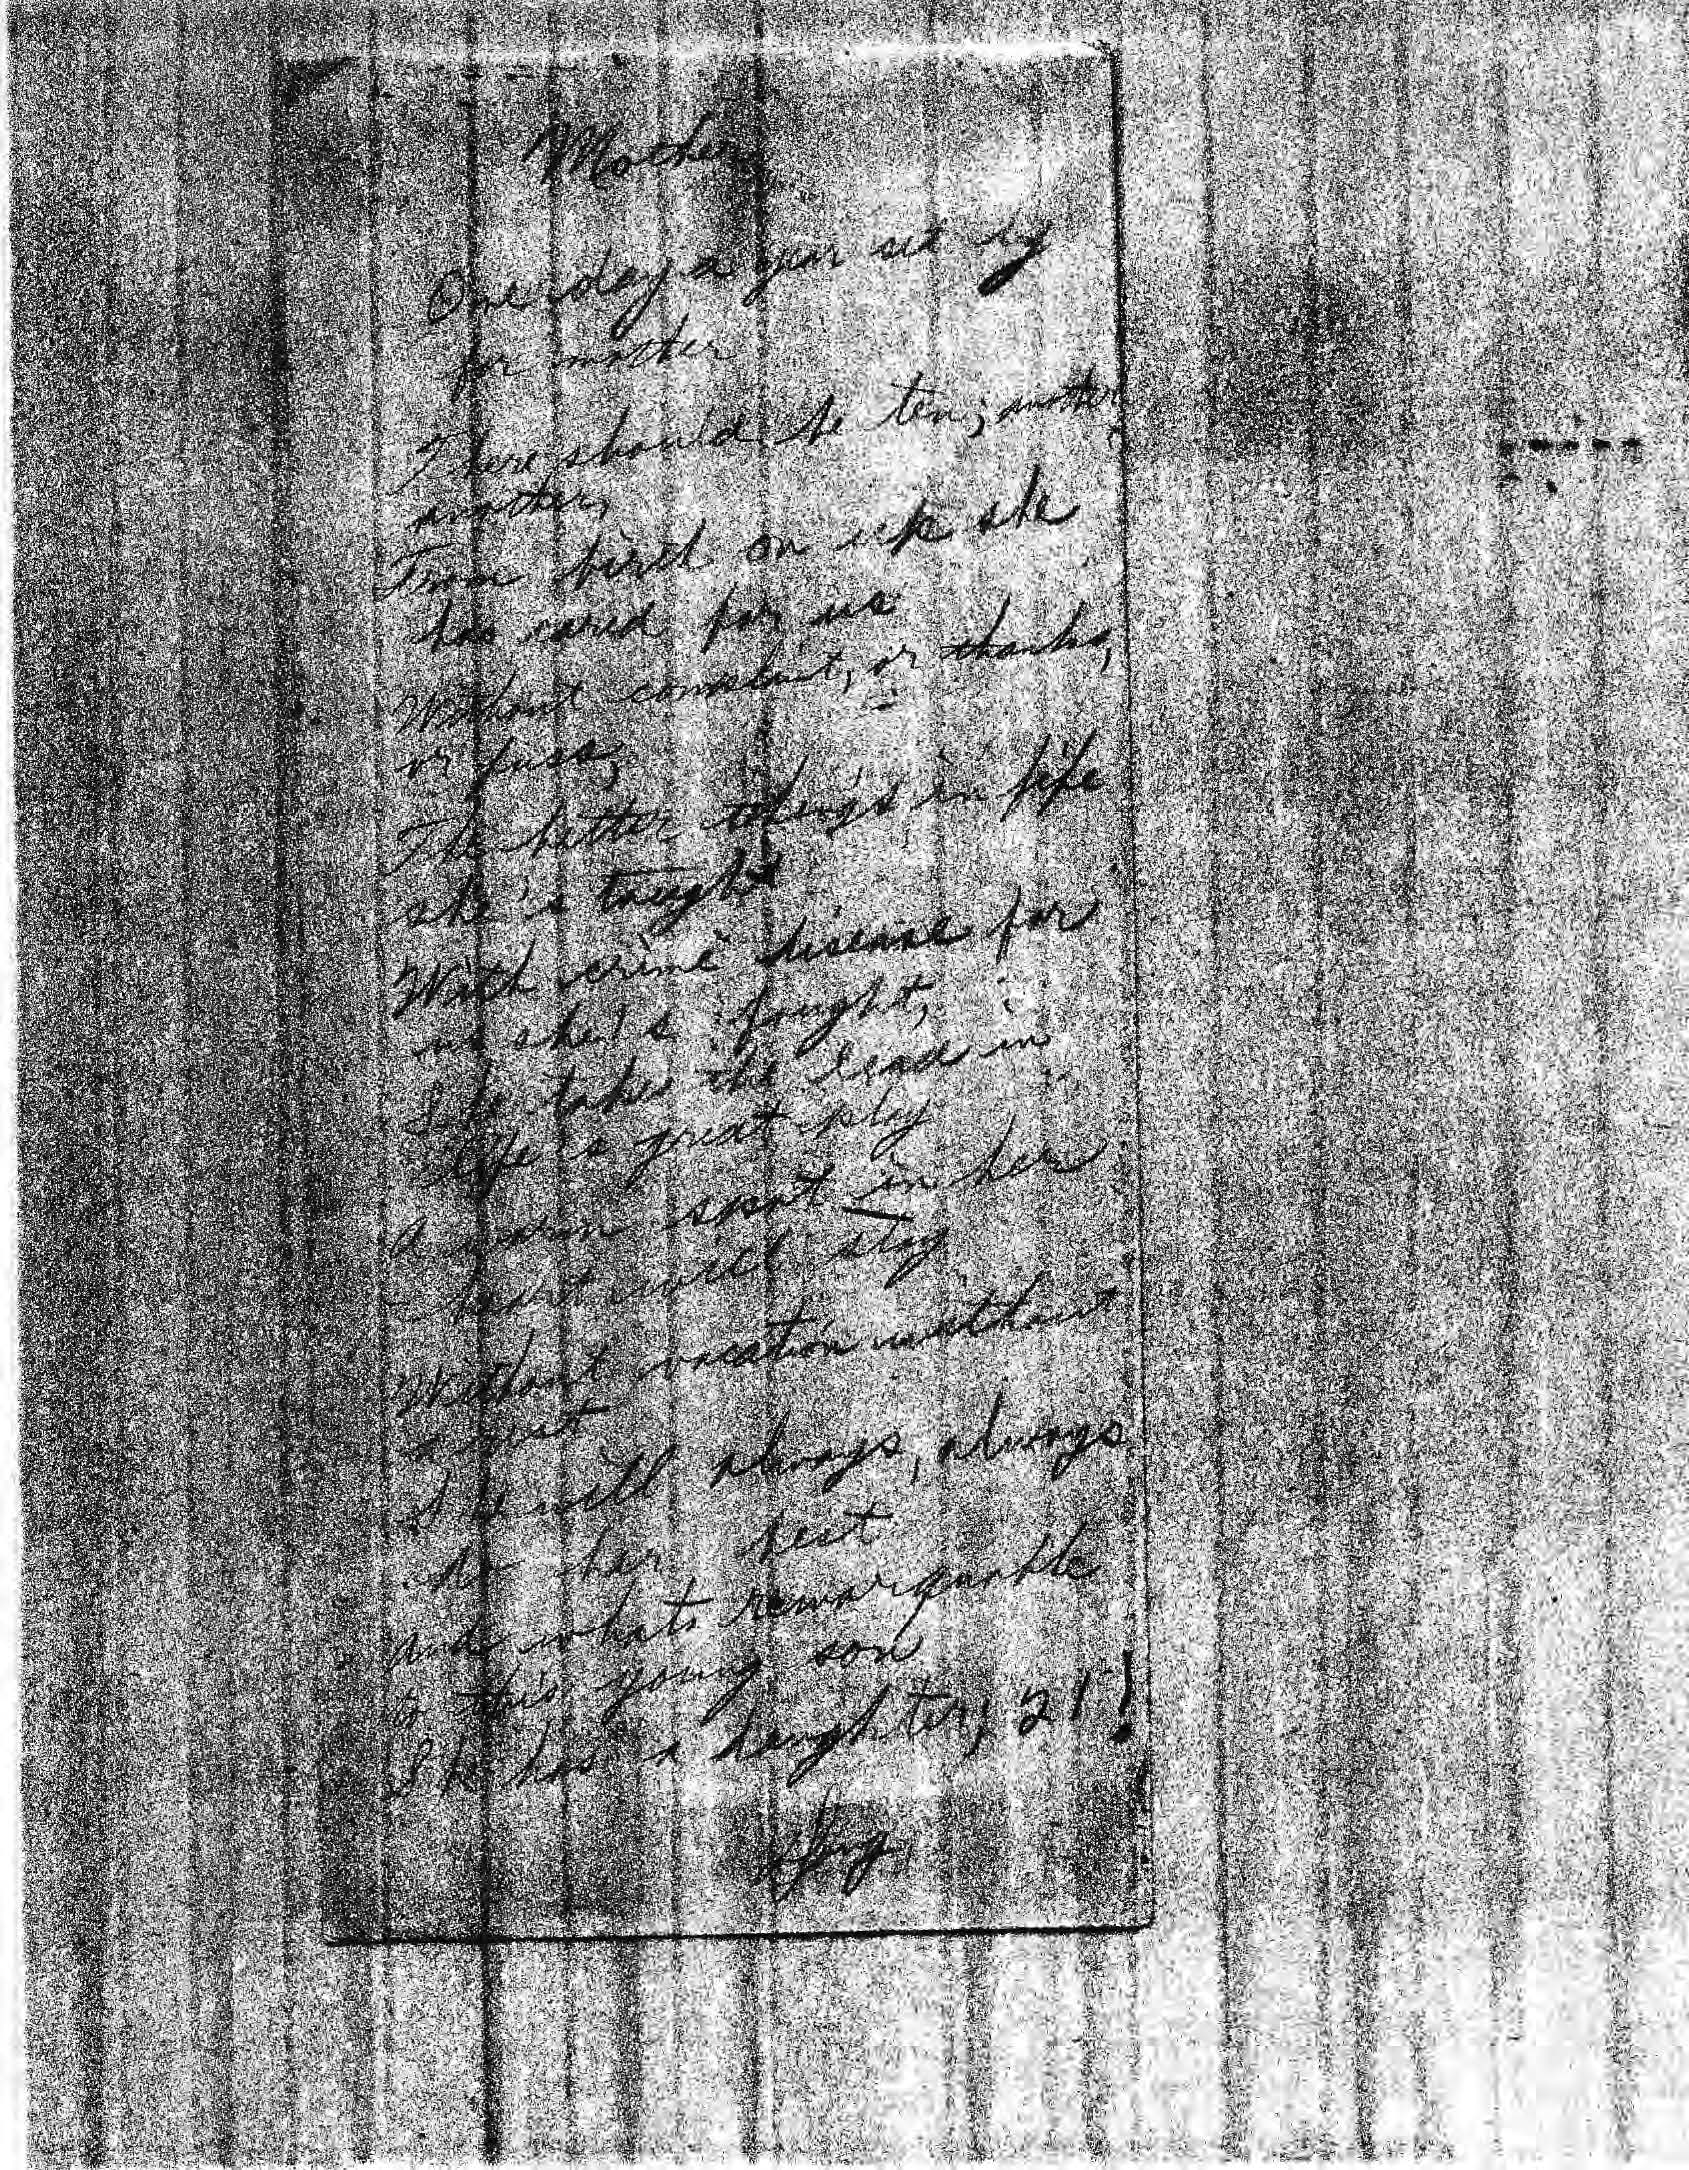 Mother
One day a year set up
for mother
There should be ten; another
another,
From birth on up she
has cared for us
Without complaint, or thanks,
or fuss,
The better things in life
she's taught
With crime disease for
us she's fought,
She takes the lead in
life's great play
A warm spot in her
heart will stay
Without vacation without
a rest
She will always, always
do her best
And whats remarquable
to this young son
She has a daughter, 21!